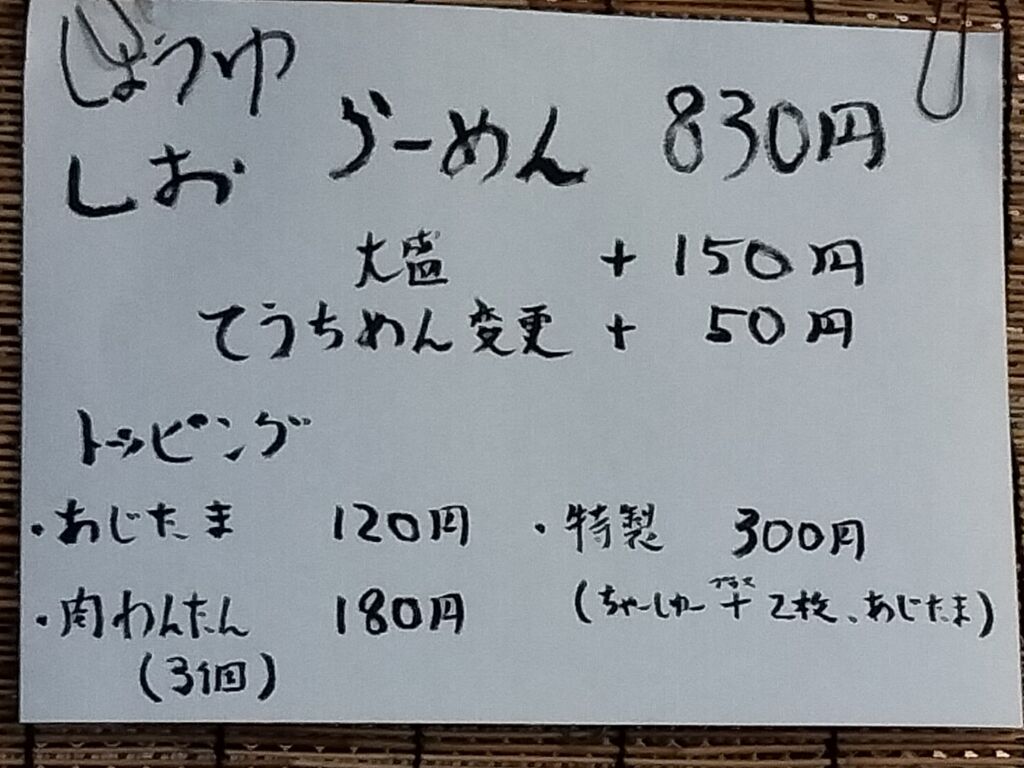 しょうゆ
しお
らーめん 830円
大盛 + 150円
てうちめん変更 + 50円
トッピング
・あじたま 120円
・特製 300円
・肉わんたん 180円
(ちゃーしゅー + 2枚、あじたま)
プラス
(3個)